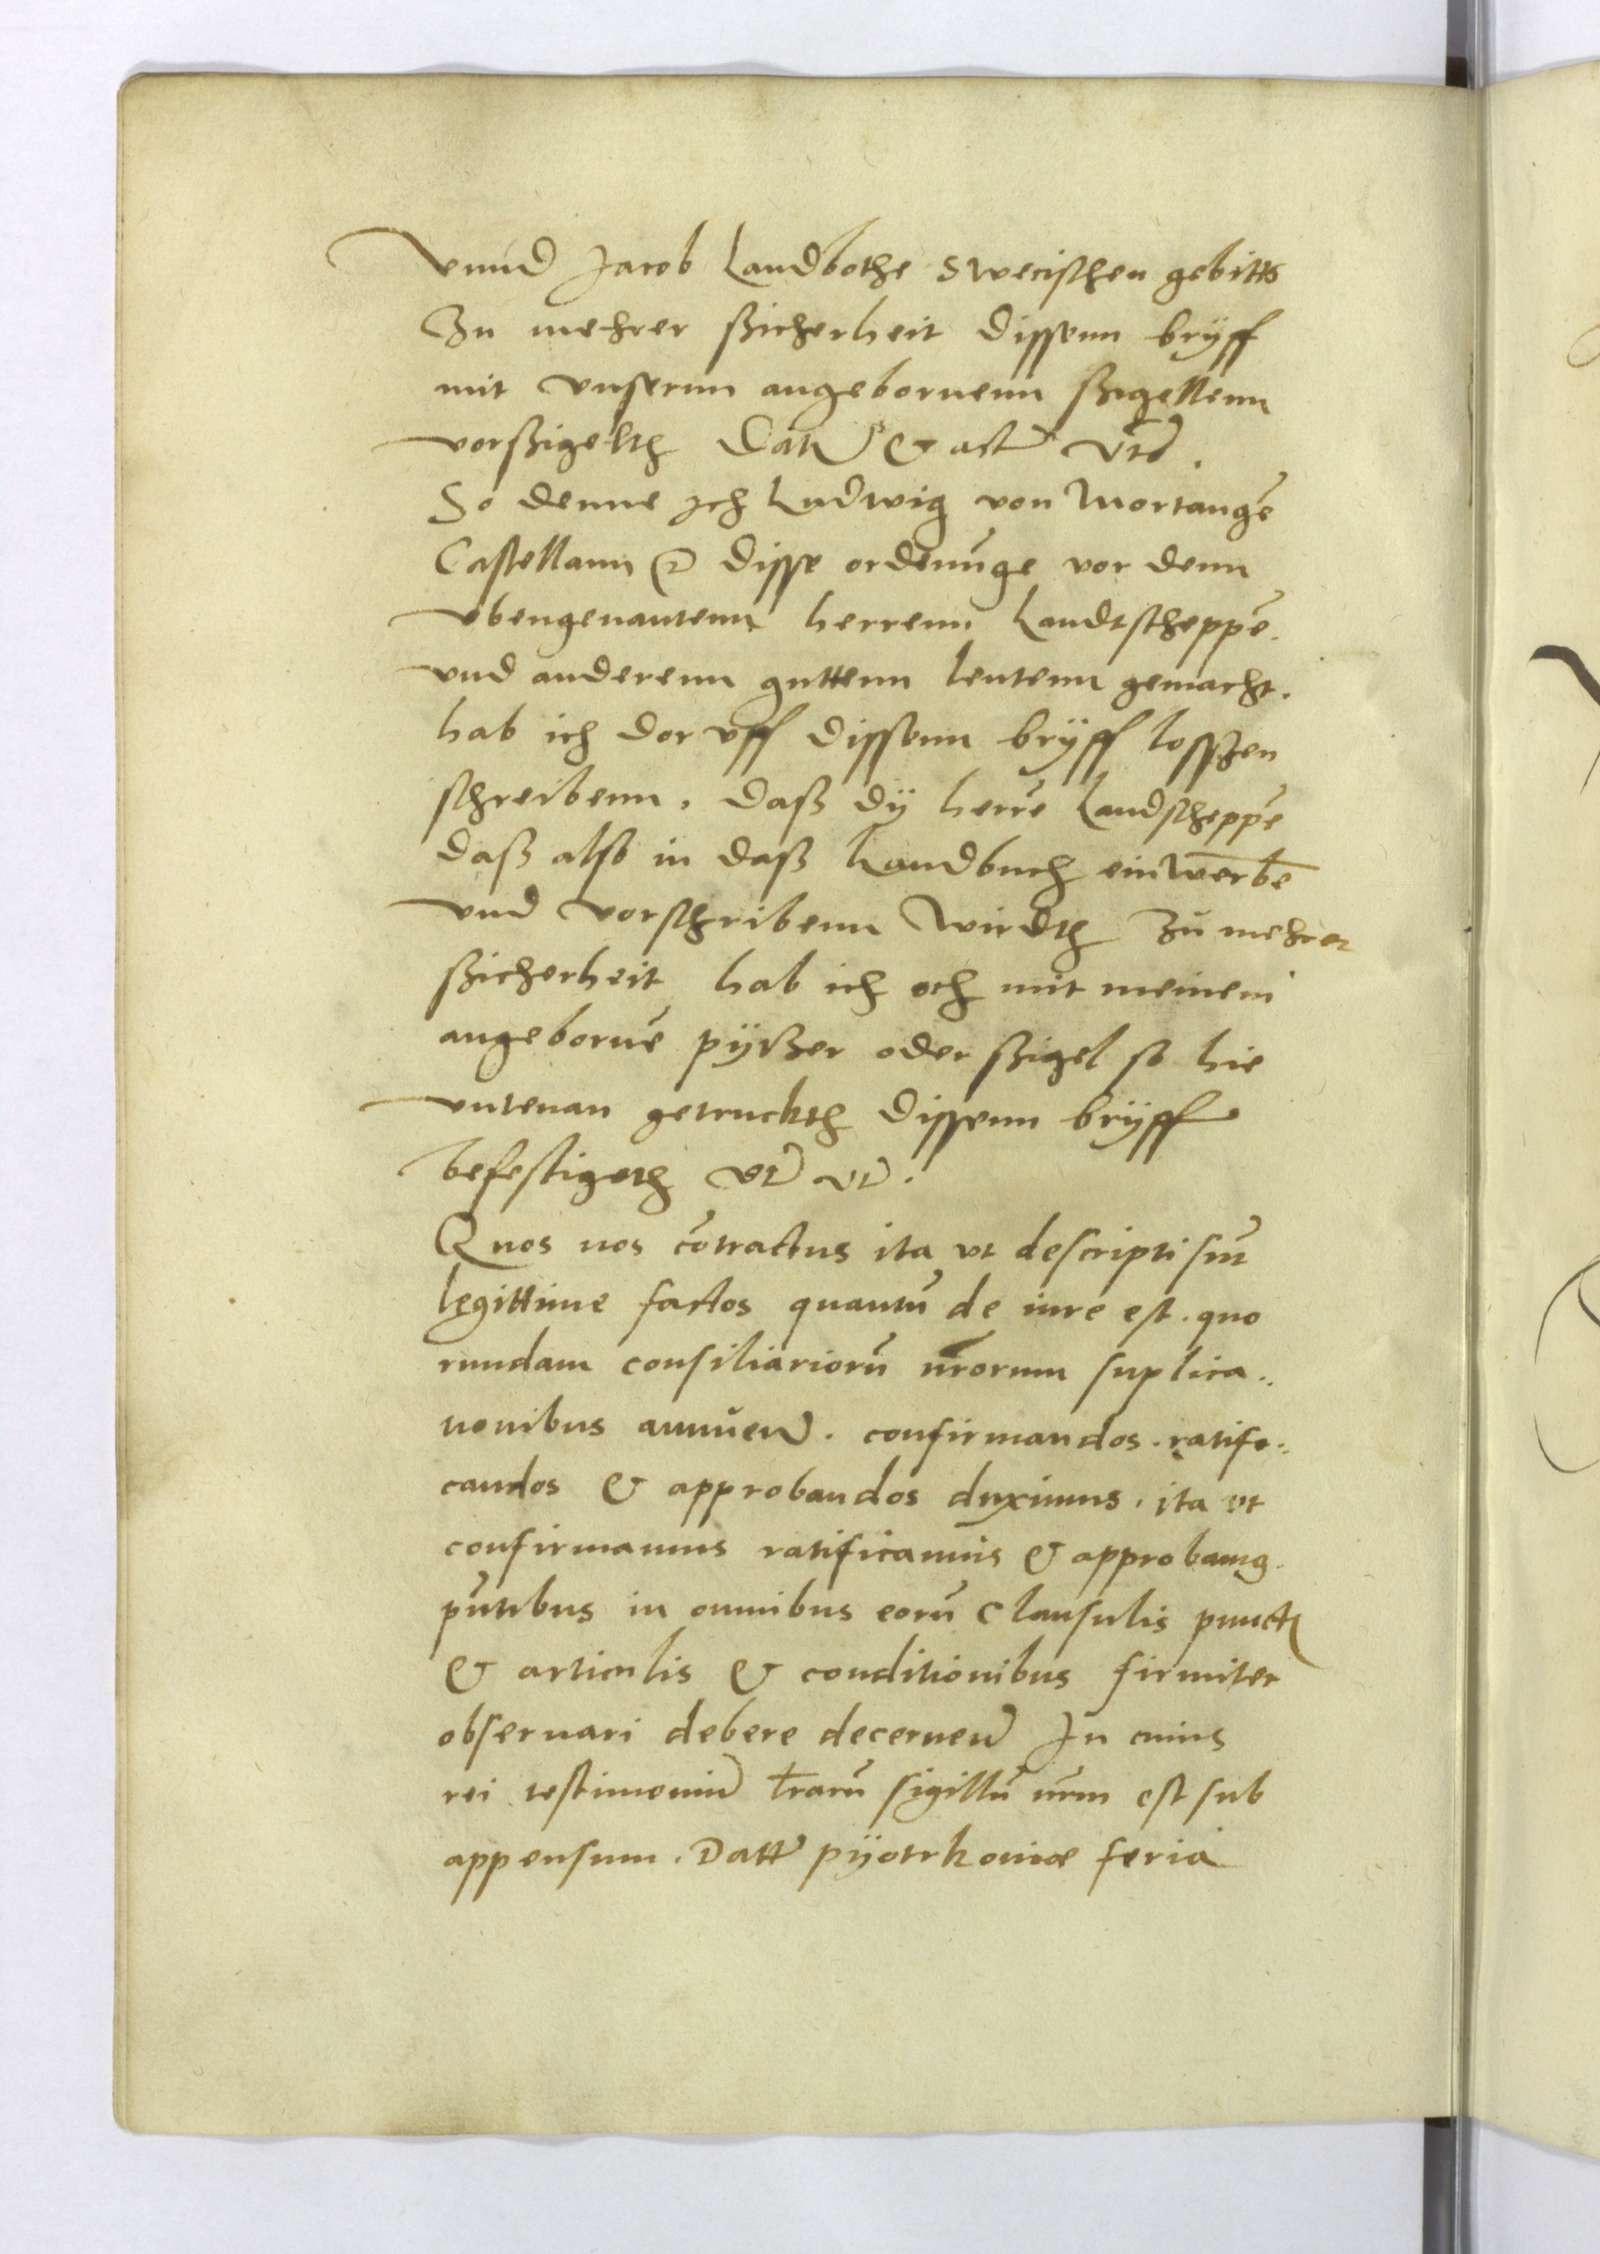 vnnd Jacob Landbothe Swecischen gebitts
Zu mehrer ßicherheit dissenn bryff
mit vnsernn angebornenn ßigellenn
vorßigelth Datū & act
So denne Ich Ludwig von Mortangē
Castellann disse ordenūge vor denn
obengenantenn herrenn Landtscheppē.
vnd anderenn guttenn leutenn gemacht.
hab ich dor vff dissenn bryff losszen
schreibenn, daß dÿ herrē Landscheppē
daß also in daß Landbuch einwerbē
vnd vorschribenn wirdth Zu mehrer
ßicherheit hab ich och mit meinem
angebornē pÿtßer oder ßigel so hie
vntenan getruckth dissenn brÿff
befestigeth
Quos nos cōtractus ita vt descripti sūt
legittime factos quantū de iure est. quo
rundam consiliariorū nr̄orum suplica..
tionibus annuen̄. confirmandos. ratifi..
candos & approbandos duximus, ita vt
confirmamus ratificamus & approbamꝰ.
pn̄tibus in omnibus eorū Clausulis punctꝭ
& articulis & conditionibus firmiter
obseruari debere decernen̄ In cuius
rei testimoniū lr̄arū sigillū nr̄m est sub
appensum. Datt̄ pÿotrkoniæ feria